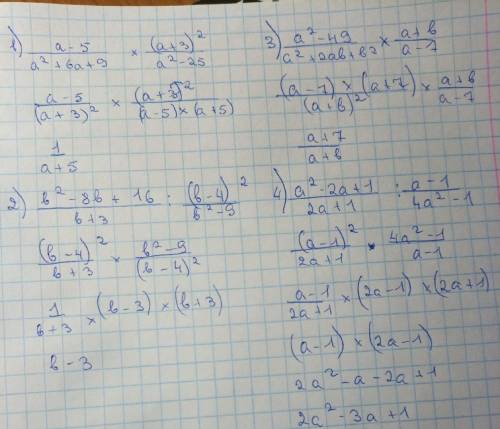 1) (a-5)/(a²+6a+9) × (a+3)²/(a²-25)
(a-5)/(a+3)² × (a+3)²/((a-5)×(a+5))
1/(a+5)
2) (b²-8b+16)/(b+3) : (b-4)²/(b²-9)
(b-4)²/(b+3) × (b²-9)/(b-4)²
1/(b+3) × (b-3) × (b+3)
b-3
3) (a²-49)/(a²+2ab+b²) × (a+b)/(a-7)
((a-7)×(a+7))/(a+b)² × (a+b)/(a-7)
(a+7)/(a+b)
4) (a²-2a+1)/(2a+1) : (a-1)/(4a²-1)
(a-1)²/(2a+1) × (4a²-1)/(a-1)
(a-1)/(2a+1) × (2a-1) × (2a+1)
(a-1) × (2a-1)
2a²-a-2a+1
2a²-3a+1